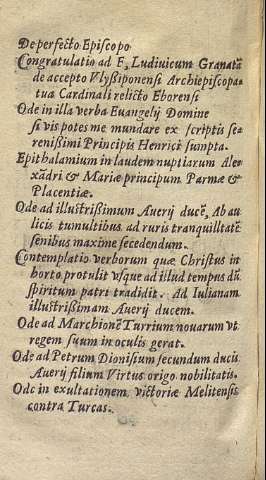 De perfecto Episcopo
Congratulatio ad F. Ludiuicum Granatẽ
de accepto Vlyßiponensi Archiepiscopa-
tu à Cardinali relicto Eborensi
Ode in illa verba Euangelij Domine
si vis potes me mundare ex scriptis se-
renißimi Principis Henrici sumpta.
Epithalamium in laudem nuptiarum Ale-
xãdri & Mariæ principum Parmæ &
Placentiæ.
Ode ad illustrißimum Auerij ducẽ, Ab au
licis tumultibus ad ruris tranquilltatẽ
senibus maxime secedendum.
Contemplatio verborum quæ Christus in
horto protulit vsque ad illud tempus dũ
spiritum patri tradidit. Ad Iulianam
illustrißimam Auerij ducem.
Ode ad Marchionẽ Turrium nouarum vt
regem suum in oculis gerat.
Ode ad Petrum Dionisium secundum ducis
Auerij filium Virtus origo nobilitatis.
Ode in exultationem victoriæ Melitensis
contra Turcas.